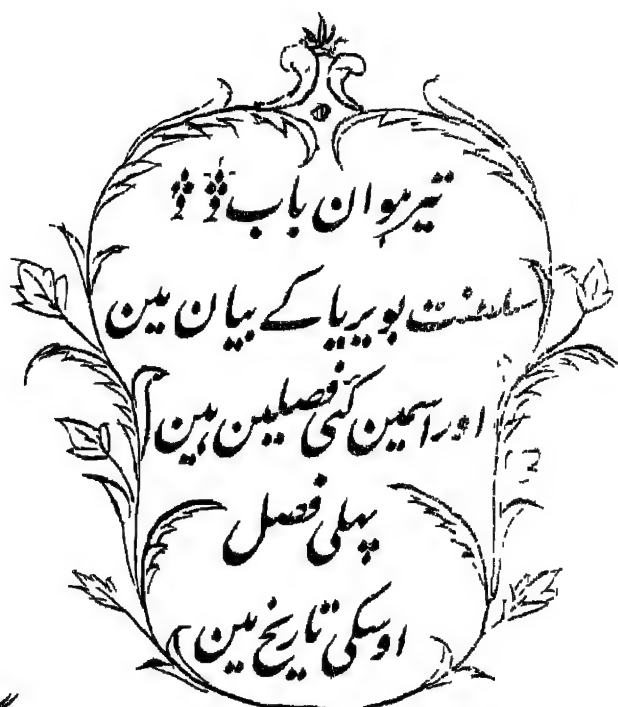 تیرہوان باب
سلطنت بویریا کے بیان مین
اور اسمین کئی فصیلین ہین
پہلی فصل
اوسکی تاریخ مین